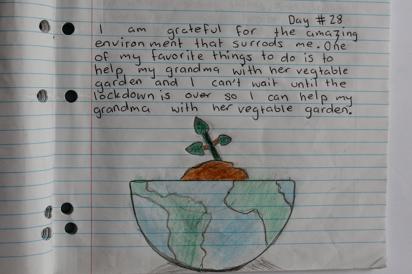 Day #28
I am grateful for the amazing
environment that surrods me. One
of my favorite things to do is to
help my grandma with her vegtable
garden and I can't wait until the
lockdown is over so I can help my
grandma with her vegtable garden.